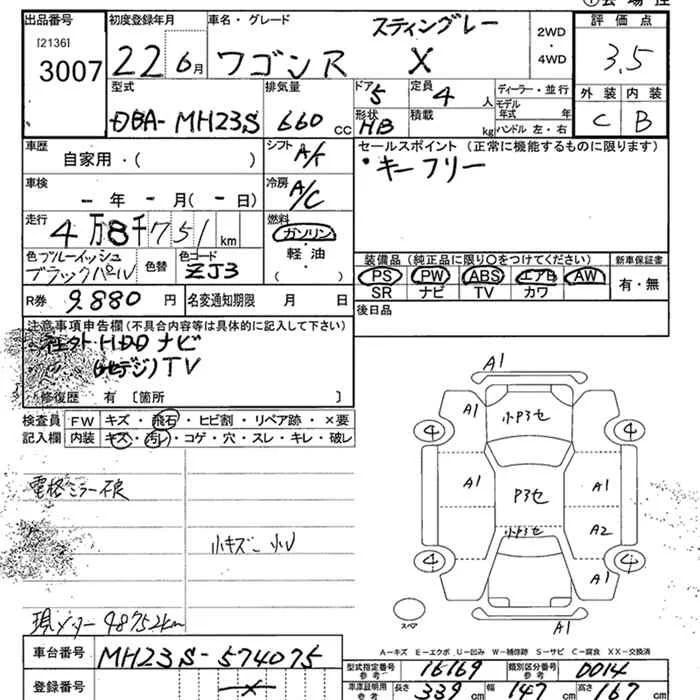 出品番号 初度登録年月 車名・グレード スティングレー 2WD ・ 4WD 評価点
[2136]
3007 22 6月 ワゴンR X 3.5
型式 排気量 ドア 5 定員 4 人 ディーラー・並行 外装 内装
モデル年式 年
DBA-MH23S 660 cc 形状 HB 積載 kg ハンドル 左・右 C B
車歴 シフト A/T セールスポイント (正常に機能するものに限ります)
自家用・( ) ・キーフリー
車検 冷房 A/C
- 年 - 月 ( - 日)
走行 4万8千751km 燃料 ガソリン
色 ブルーイッシュブラックパール 色替 色コード ZJ3 軽油 ( )
装備品 (純正品に限り○をつけてください) 新車保証書
PS PW ABS エアB AW 有・無
SR ナビ TV カワ
R券 9.880 円 名変通知期限 月 日 後日品
注意事項申告欄 (不具合内容等は具体的に記入して下さい)
HDDナビ
TV
修復歴 有 〔箇所 〕
検査員 FW キズ・飛石・ヒビ割・リペア跡・×要
記入欄 内装 キズ・汚レ・コゲ・穴・スレ・キレ・破レ
電格ミラー不良
小キズ 小ハ
現メーター 48752km
A1
A1 小P3セ A1
④ ④
A1 P3セ A1
小P3セ A2
④ ④
A1
スペア A1
A-キズ E-エクボ U-凹み W-補修跡 S-サビ C-腐食 XX-交換済
車台番号 MH23S-574075
型式指定番号 参考 16169 類別区分番号 参考 0014
登録番号
車庫証明用 参考 長さ 339 cm 幅 147 cm 高さ 167 cm